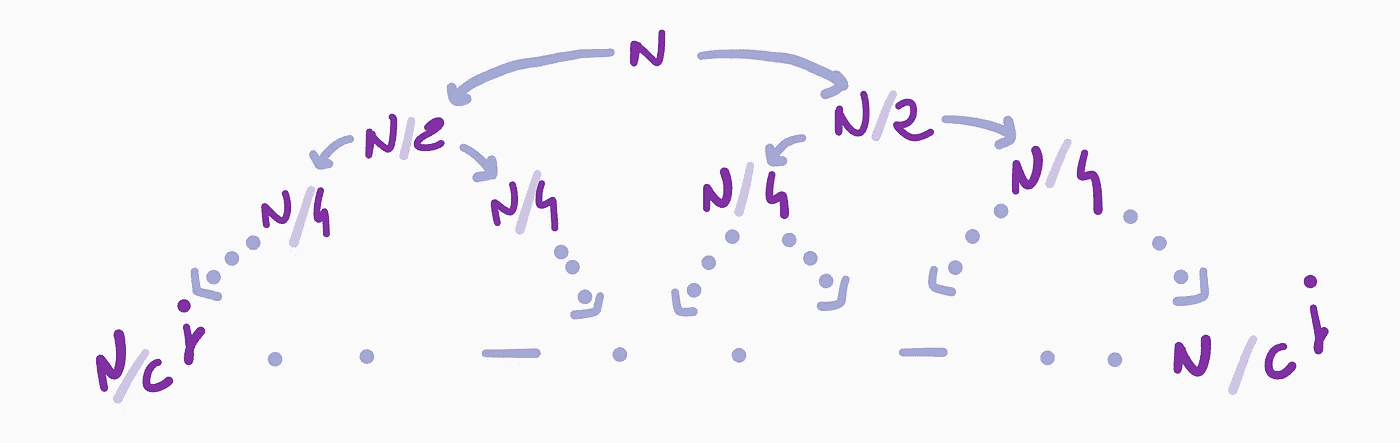 N
N/2 N/2
N/4 N/4 N/4 N/4
N/cⁱ N/cⁱ